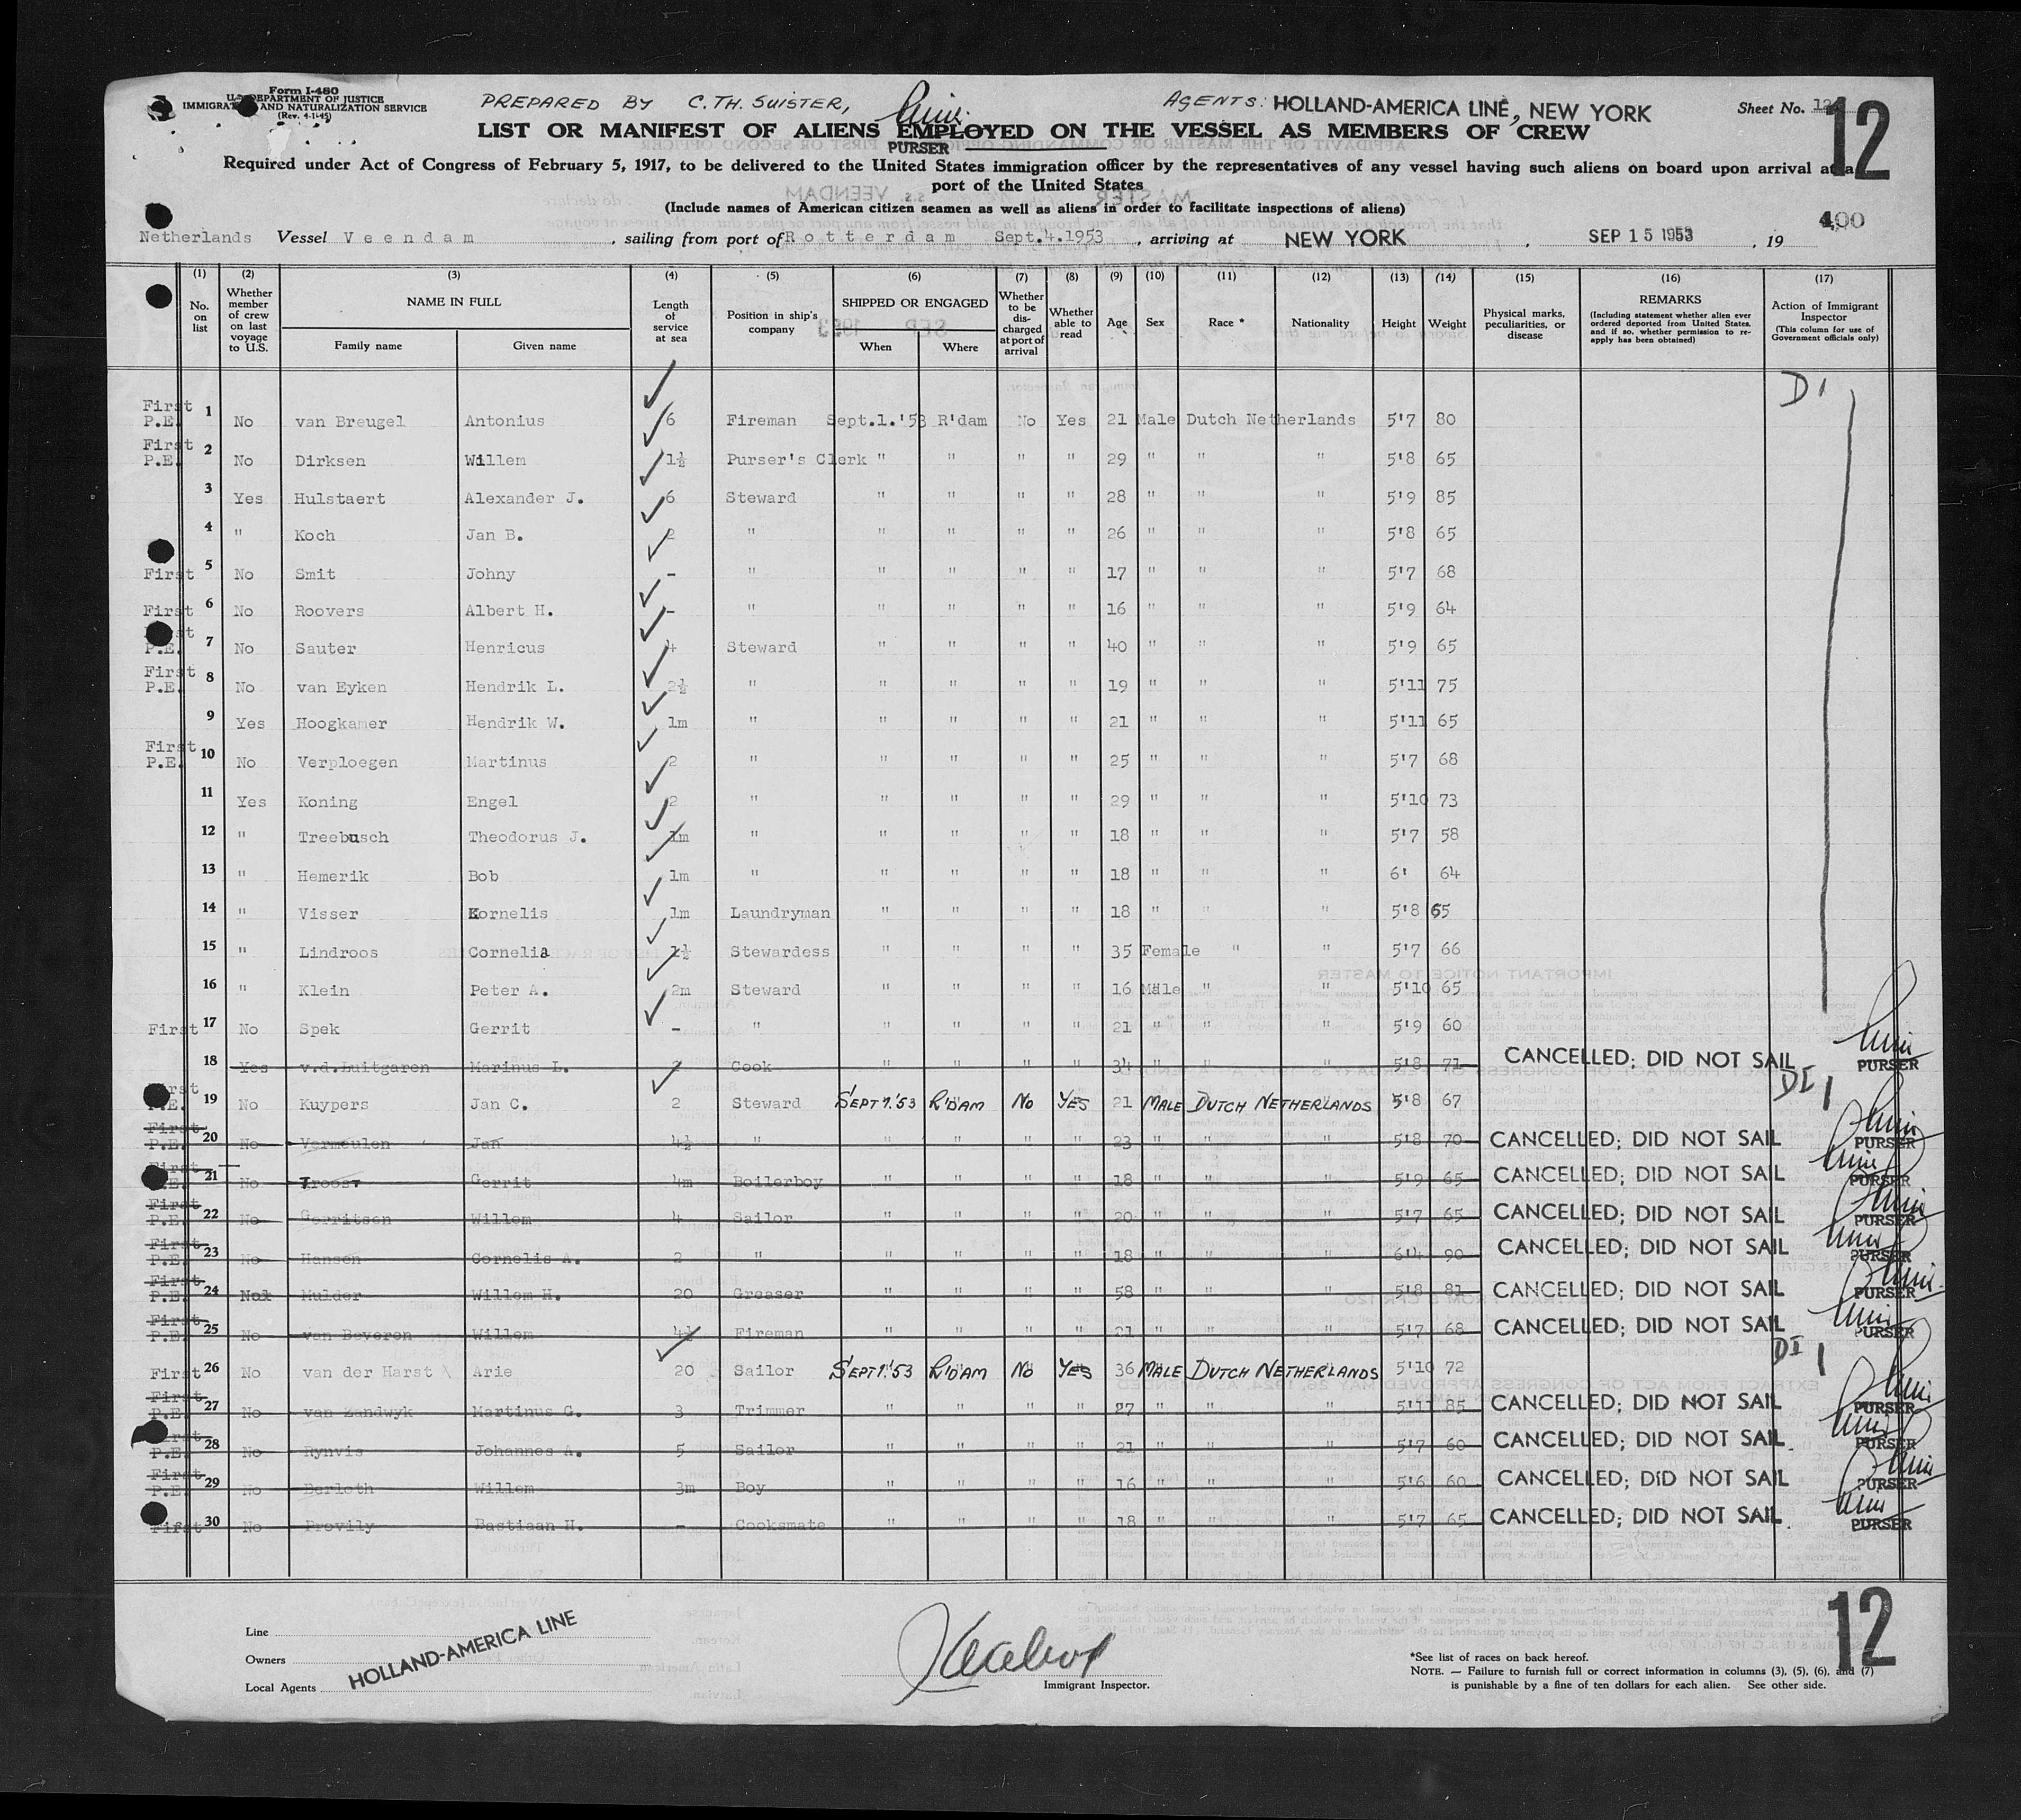 Form I-480
U.S. DEPARTMENT OF JUSTICE
IMMIGRATION AND NATURALIZATION SERVICE
(Rev. 4-1-45)
PREPARED BY C. TH. SUISTER,
PURSER
AGENTS: HOLLAND-AMERICA LINE, NEW YORK
Sheet No. 12
12
LIST OR MANIFEST OF ALIENS EMPLOYED ON THE VESSEL AS MEMBERS OF CREW
Required under Act of Congress of February 5, 1917, to be delivered to the United States immigration officer by the representatives of any vessel having such aliens on board upon arrival at a
port of the United States
(Include names of American citizen seamen as well as aliens in order to facilitate inspections of aliens)
400
Netherlands Vessel Veendam, sailing from port of Rotterdam Sept.4.1953, arriving at NEW YORK, SEP 15 1953, 19
(1) (2) (3) (4) (5) (6) (7) (8) (9) (10) (11) (12) (13) (14) (15) (16) (17)
No. on list
Whether member of crew on last voyage to U.S.
NAME IN FULL
Family name Given name
Length of service at sea
Position in ship's company
SHIPPED OR ENGAGED
When Where
Whether to be discharged at port of arrival
Whether able to read
Age Sex Race * Nationality Height Weight
Physical marks, peculiarities, or disease
REMARKS
(Including statement whether alien ever ordered deported from United States, and if so, whether permission to reapply has been obtained)
Action of Immigrant Inspector
(This column for use of Government officials only)
First P.E. 1 No van Breugel Antonius 6 Fireman Sept.1.'53 R'dam No Yes 21 Male Dutch Netherlands 5'7 80 D1
First P.E. 2 No Dirksen Willem 1½ Purser's Clerk " " " " 29 " " " 5'8 65
3 Yes Hulstaert Alexander J. 6 Steward " " " " 28 " " " 5'9 85
4 " Koch Jan B. 2 " " " " " 26 " " " 5'8 65
First 5 No Smit Johny - " " " " " 17 " " " 5'7 68
First 6 No Roovers Albert H. - " " " " " 16 " " " 5'9 64
First P.E. 7 No Sauter Henricus 4 Steward " " " " 40 " " " 5'9 65
First P.E. 8 No van Eyken Hendrik L. 2½ " " " " " 19 " " " 5'11 75
9 Yes Hoogkamer Hendrik W. 1m " " " " " 21 " " " 5'11 65
First P.E. 10 No Verploegen Martinus 2 " " " " " 25 " " " 5'7 68
11 Yes Koning Engel 2 " " " " " 29 " " " 5'10 73
12 " Treebusch Theodorus J. 1m " " " " " 18 " " " 5'7 58
13 " Hemerik Bob 1m " " " " " 18 " " " 6' 64
14 " Visser Kornelis 1m Laundryman " " " " 18 " " " 5'8 65
15 " Lindroos Cornelia 1½ Stewardess " " " " 35 Female " " 5'7 66
16 " Klein Peter A. 2m Steward " " " " 16 Male " " 5'10 65
First 17 No Spek Gerrit - " " " " " 21 " " " 5'9 60
18 Yes v.d.Luitgaren Marinus L. 2 Cook " " " " 34 " " " 5'8 71 CANCELLED; DID NOT SAIL PURSER
First P.E. 19 No Kuypers Jan C. 2 Steward SEPT 1.'53 R'DAM NO YES 21 MALE DUTCH NETHERLANDS 5'8 67 DI 1
First P.E. 20 No Vermeulen Jan 4½ " " " " " 23 " " " 5'8 70 CANCELLED; DID NOT SAIL PURSER
First P.E. 21 No Troost Gerrit 4m Boilerboy " " " " 18 " " " 5'9 65 CANCELLED; DID NOT SAIL PURSER
First P.E. 22 No Gerritsen Willem 4 Sailor " " " " 20 " " " 5'7 65 CANCELLED; DID NOT SAIL PURSER
First P.E. 23 No Hansen Cornelis A. 2 " " " " " 18 " " " 6'4 90 CANCELLED; DID NOT SAIL PURSER
First P.E. 24 Mulder Willem H. 20 Greaser " " " " 58 " " " 5'8 81 CANCELLED; DID NOT SAIL PURSER
First P.E. 25 No van Beveren Willem 4½ Fireman " " " " 21 " " " 5'7 68 CANCELLED; DID NOT SAIL PURSER
First 26 No van der Harst Arie 20 Sailor SEPT 1.'53 R'DAM NO YES 36 MALE DUTCH NETHERLANDS 5'10 72 DI 1
First P.E. 27 No van Zandwyk Martinus G. 3 Trimmer " " " " 27 " " " 5'11 85 CANCELLED; DID NOT SAIL PURSER
First P.E. 28 No Rynvis Johannes A. 5 Sailor " " " " 21 " " " 5'7 60 CANCELLED; DID NOT SAIL PURSER
First P.E. 29 No Berloth Willem 3m Boy " " " " 16 " " " 5'6 60 CANCELLED; DID NOT SAIL PURSER
First 30 No Provily Bastiaan H. - Cooksmate " " " " 18 " " " 5'7 65 CANCELLED; DID NOT SAIL PURSER
12
Line
Owners HOLLAND-AMERICA LINE
Local Agents
Immigrant Inspector.
*See list of races on back hereof.
NOTE. — Failure to furnish full or correct information in columns (3), (5), (6), and (7)
is punishable by a fine of ten dollars for each alien. See other side.